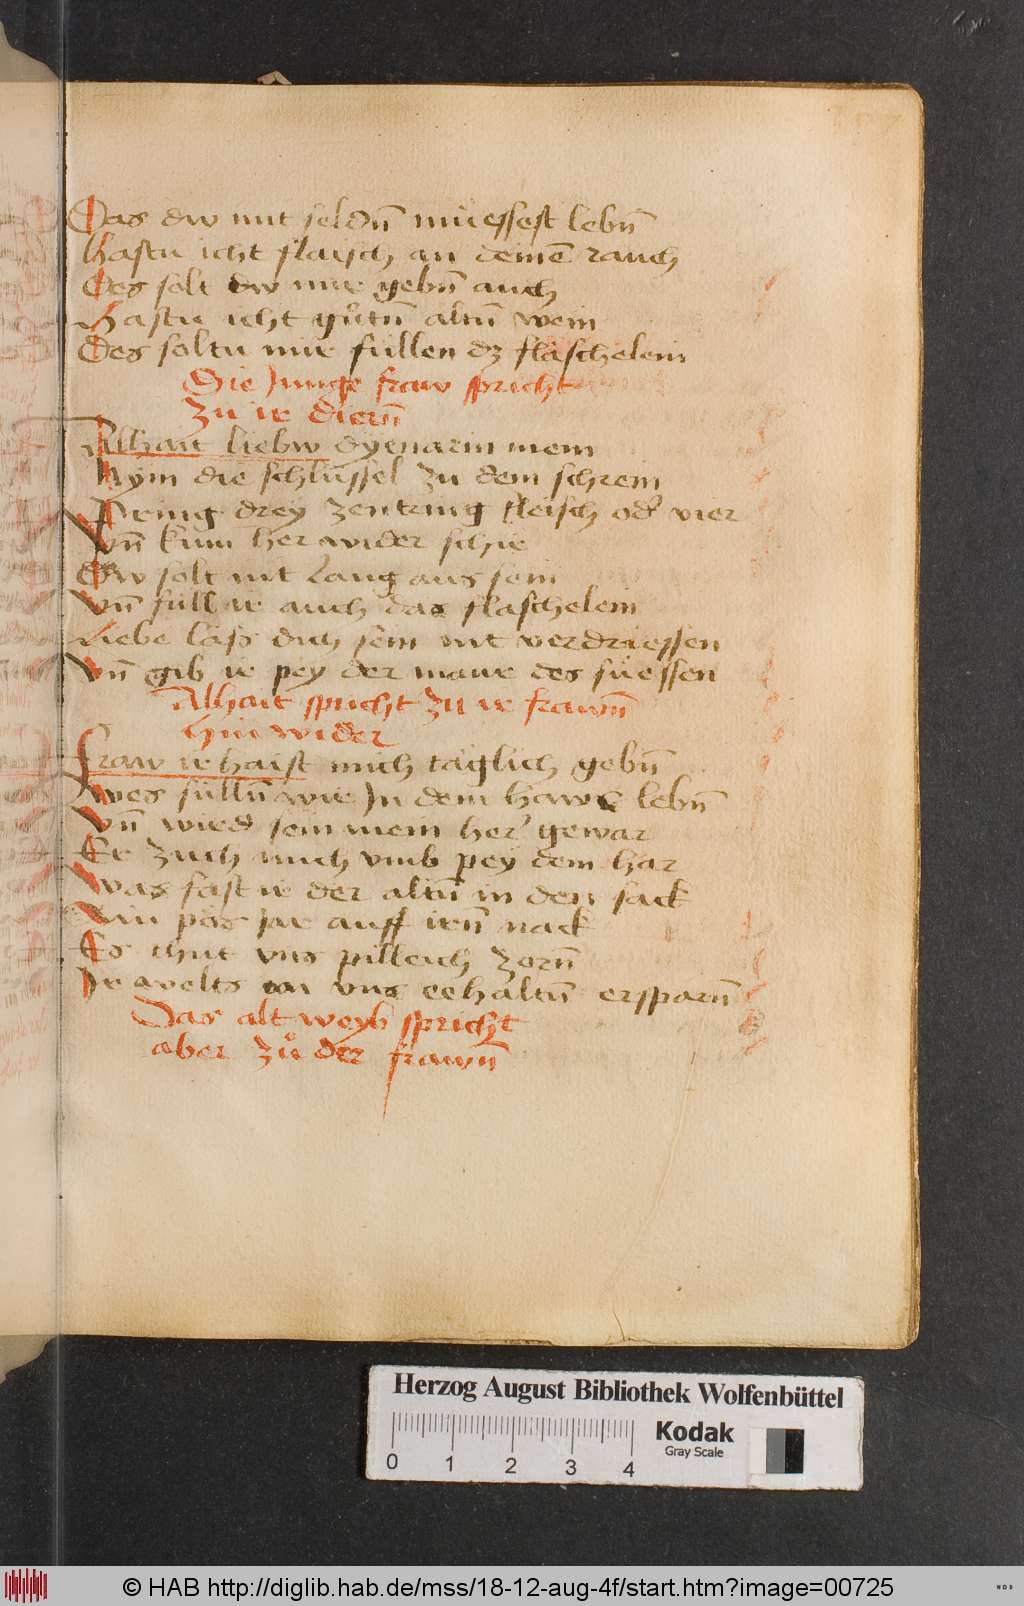 Das dw mit seldn̄ müessest lebn̄
Hastu icht flaisch an deinē rauch
Des solt dw mir gebn̄ auch
Hastu icht gůtn̄ altn̄ wein
Des soltu mir füllen dz fläschelein
Die Junge fraw spricht
Zu ir diern̄
Alhait liebw dyenarin mein
Nym die schlüssel zu dem schrein
Pring drey zentring fleisch od' vier
Vn̄ kum her wider schir
Dw solt nit Lang aus sein
Vn̄ füll ir auch das flaschelein
Liebe läss dich sein nit verdriessen
Vn̄ gib ir pey der maur des süessen
Alhait spricht zu ir frawn̄
hin wider
Fraw ir haist mich täglich gebn̄
Wes sülln̄ wir Jn dem haws lebn̄
Vn̄ wird sein mein her' gewar
Er zuch mich vmb pey dem har
Was fast ir der altn̄ in den sack
Ain pös jar auff irn̄ nack
Es thut vns pilleich zorn̄
Ir welts an vns eehaltn̄ ersparn̄
Das alt weyb spricht
aber zů der frawn̄
Herzog August Bibliothek Wolfenbüttel
Kodak
Gray Scale
0 1 2 3 4
© HAB http://diglib.hab.de/mss/18-12-aug-4f/start.htm?image=00725